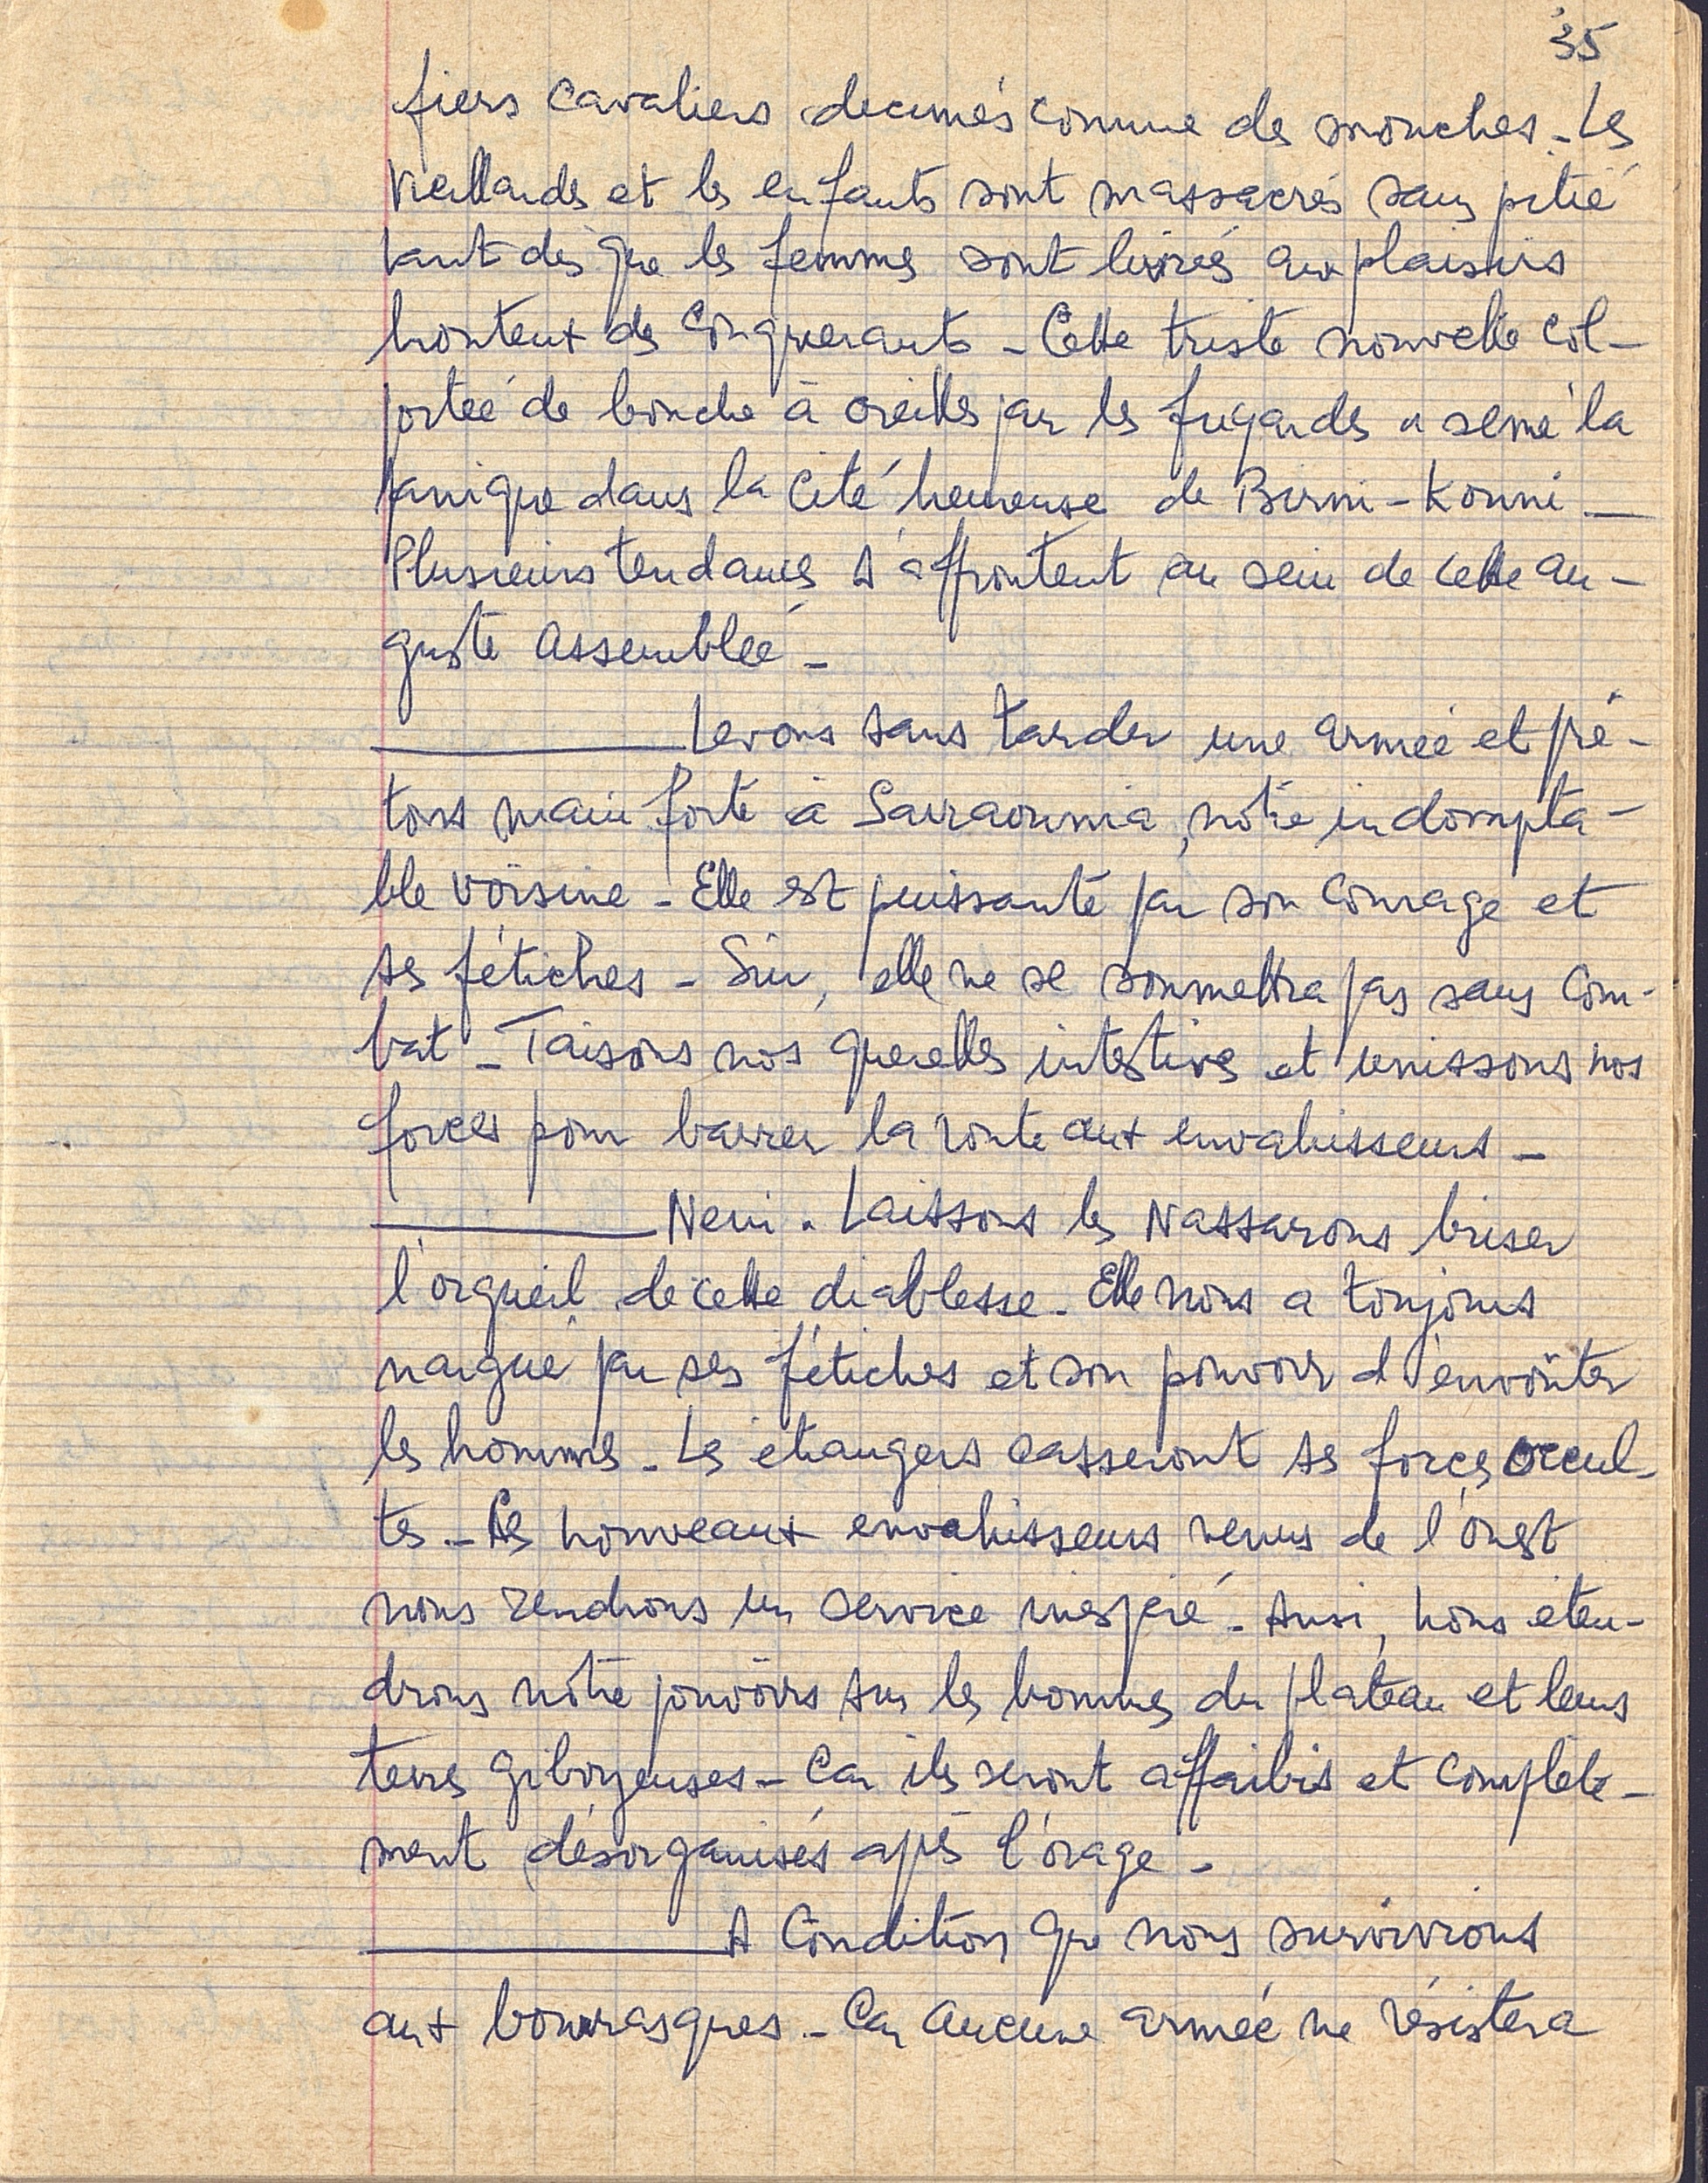 35
fiers cavaliers decimés comme des mouches - Les
vieillards et les enfants sont massacrés sans pitié
tant dis que les femmes sont livrés aux plaisirs
honteux des conquerants - Cette triste nouvelle col-
portée de bouche à oreilles par les fugards a semé la
panique dans la cité heureuse de Birni - Konni -
Plusieurs tendances s'affrontent au sein de cette au-
guste assemblée -
Levons sans tarder une armée et prê-
tons main forte à Sarraounia, nôtre indompta-
ble voisine - Elle est puissante par son courage et
ses fétiches - Sûr, elle ne se soummettra pas sans com-
bat - Taisons nos querelles intestines et unissons nos
forces pour barrer la route aux envahisseurs -
Neni. Laissons les Nassarous briser
l'orgueil de cette diablesse - Elle nous a toujours
nargué par ses fétiches et son pouvoir d'envoûter
les hommes - Les étrangers casseront ses forces occul-
tes - Les nouveaux envahisseurs venus de l'ouest
nous rendrons un service inespéré - Ainsi, nous éten-
drons nôtre pouvoirs sur les hommes du plateau et leurs
terres giboyeuses - Car ils seront affaibis et complète-
ment désorganisés après l'orage -
A condition que nous survivions
aux bourrasques - Car aucune armée ne résistera